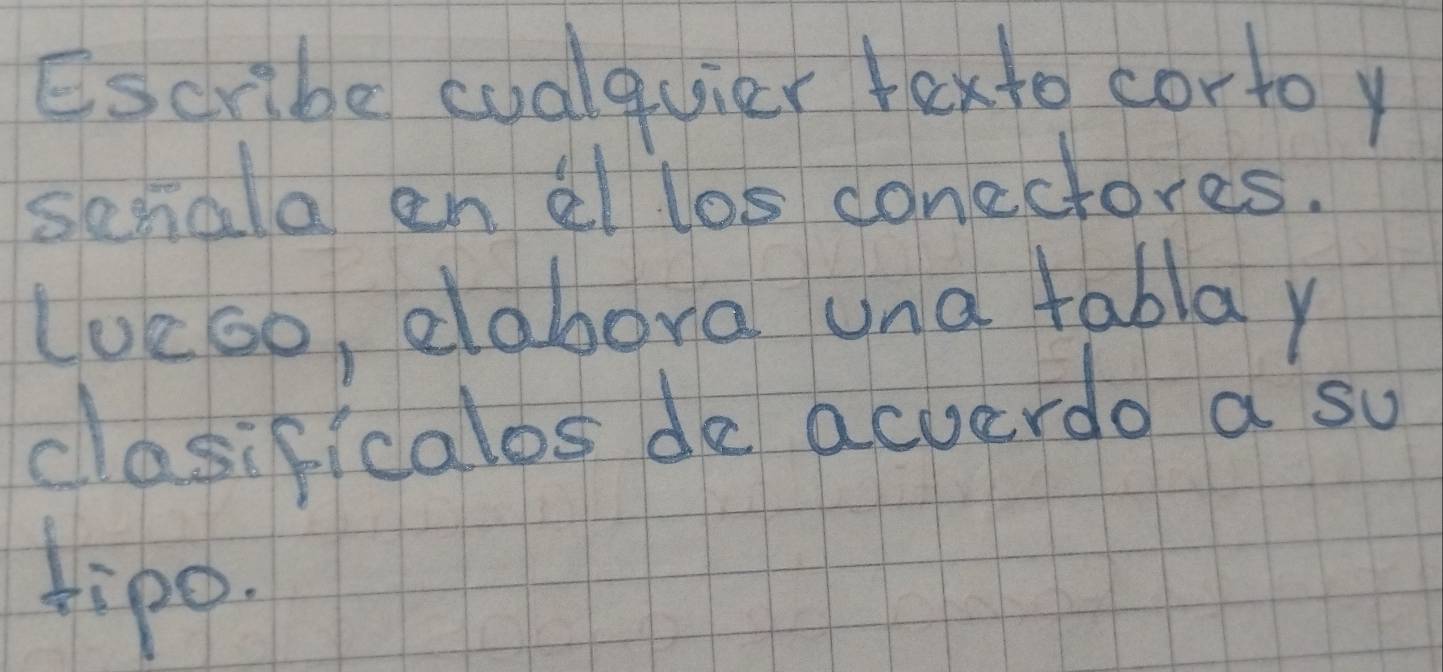 Escribe cualquier texto corto y
señala en él los conectores.
Luego, elabora una tabla y
clasifícalos de acuerdo a su
tipo.